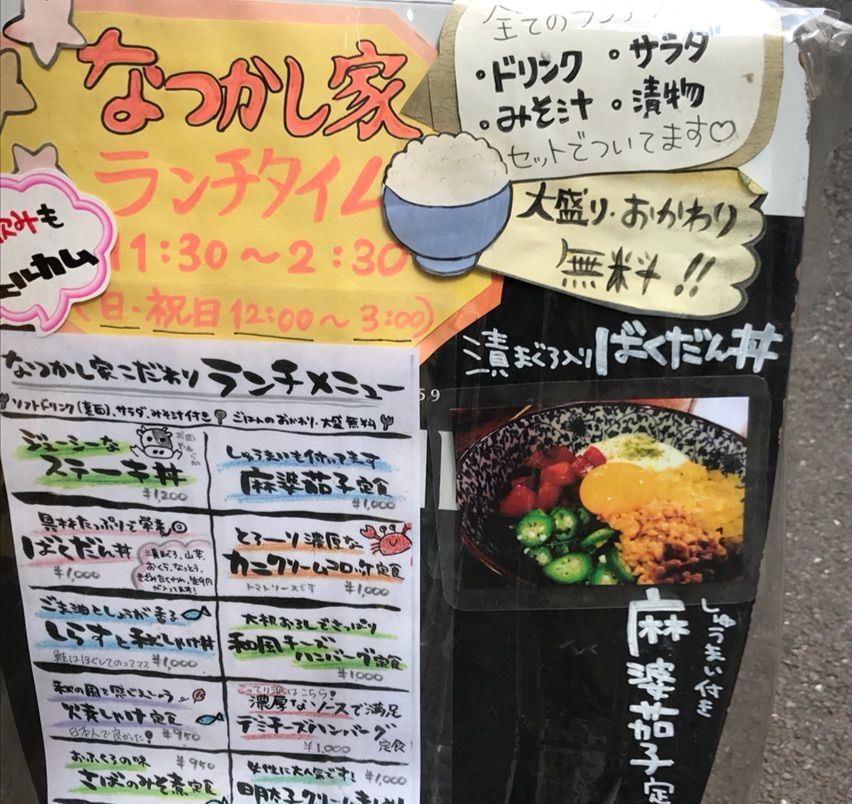 なつかし家
ランチタイム
11:30～2:30
(日・祝日 12:00～3:00)
飲みも
ェルカム
全てのランチ
・ドリンク ・サラダ
・みそ汁 ・漬物
セットでついてます♡
大盛り・おかわり
無料!!
漬まぐろ入り ばくだん丼
59
なつかし家こだわり ランチメニュー
ソフトドリンク(裏面)、サラダ、みそ汁付き ごはんのおかわり・大盛無料
ジューシーな
ステーキ丼
¥1,200
しゅうまいも付いてます
麻婆茄子定食
¥1,000
具材たっぷりで栄養◎
ばくだん丼
¥1,000
漬まぐろ、山芋、
おくら、なっとう、
きざみたくわん、生卵
が入ってます!
とろーり濃厚な
カニクリームコロッケ定食
トマトソースです ¥1,000
ごま油としょうが香る
しらすと秋しゃけ丼
鮭はほぐしてのってマス ¥1,000
大根おろしでさっぱり
和風チーズ
ハンバーグ定食
¥1,000
秋の風を感じましょう
火焼しゃけ定食
日本人で良かった! ¥950
こってり派はこちら!
濃厚なソースで満足
デミチーズハンバーグ
定食
¥1,000
おふくろの味 ¥950
さばのみそ煮定食
女性に大人気です! ¥1,000
明太子クリーム
しゅうまい付き
麻婆茄子定